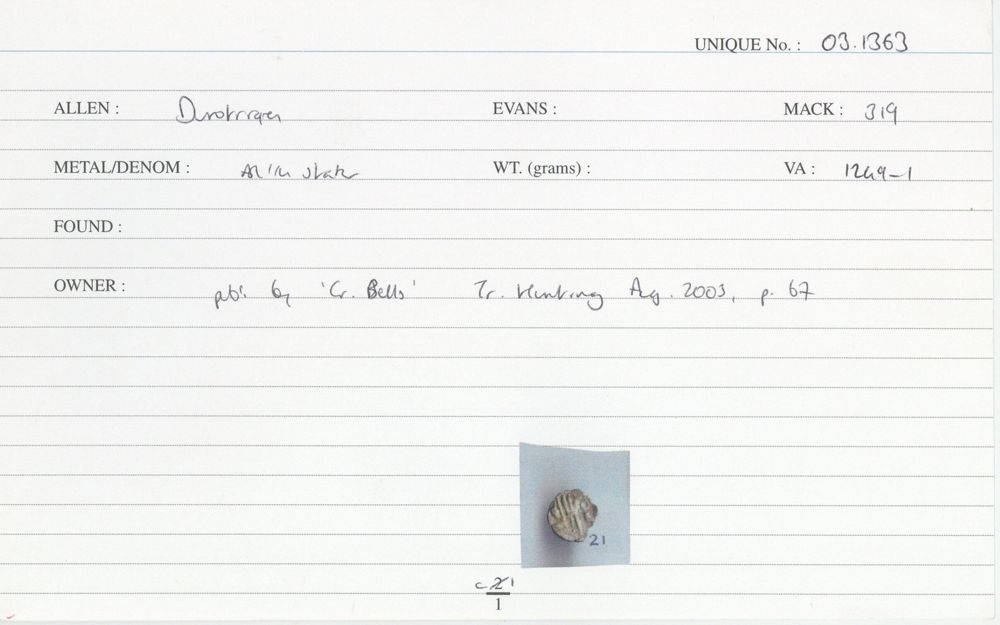 UNIQUE No. : 03.1363
ALLEN : Durotriges EVANS : MACK : 319
METAL/DENOM : WT. (grams) : VA : 1249-1
FOUND :
OWNER : pbl. by 'Gr. Bells' Tr. Hunting Aug. 2003, p. 67
21
1